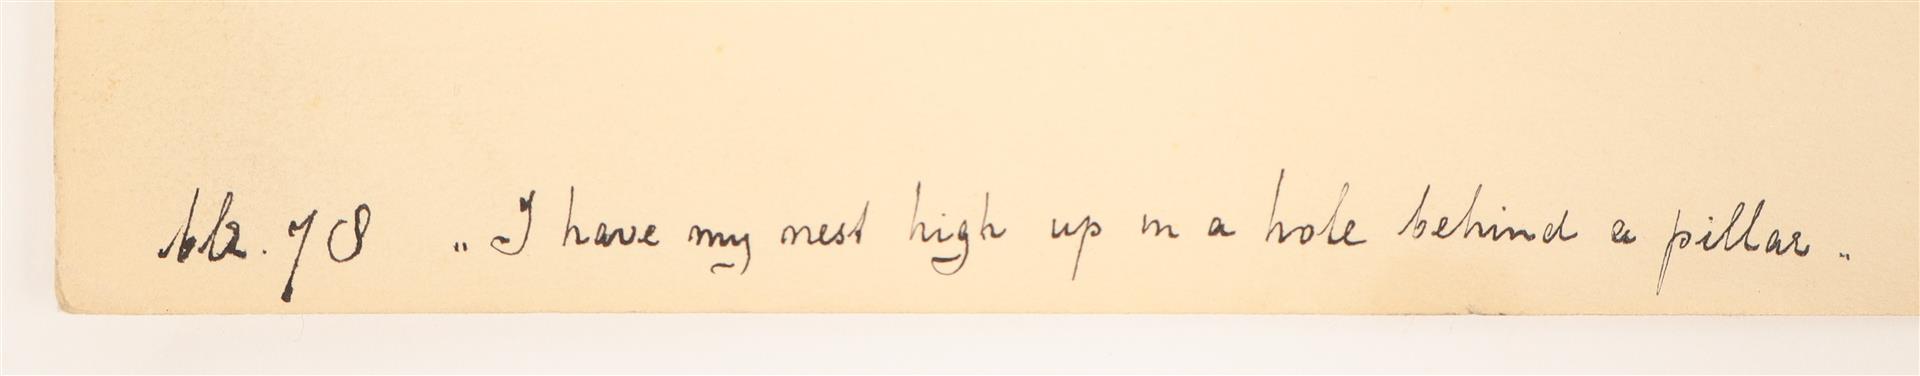 blz. 78 „I have my nest high up in a hole behind a pillar„